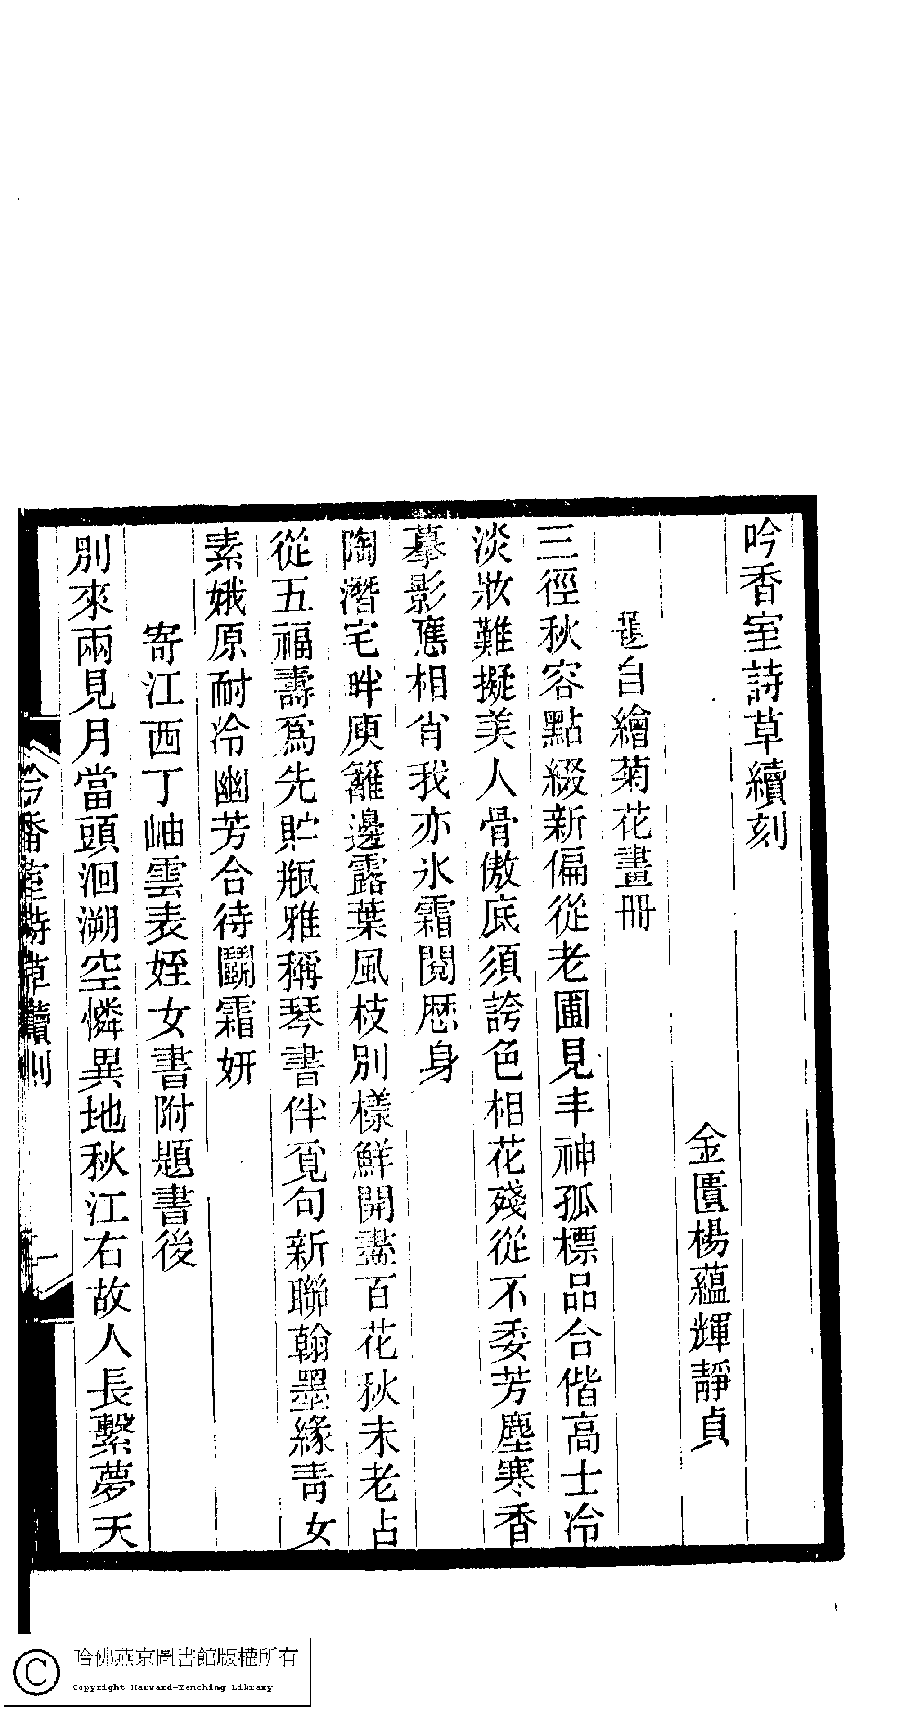 吟香室詩草續刻
金匱楊蘊輝靜貞
題自繪菊花畫冊
三徑秋容點綴新偏從老圃見丰神孤標品合偕高士冷
淡妝難擬美人骨傲底須誇色相花殘從不委芳塵寒香
摹影應相肖我亦氷霜閱歷身
陶潛宅畔庾籬邊露葉風枝別樣鮮開盡百花秋未老占
從五福壽爲先貯瓶雅稱琴書伴覓句新聯翰墨緣靑女
素娥原耐冷幽芳合待鬭霜妍
寄江西丁岫雲表姪女書附題書後
別來兩見月當頭洄溯空憐異地秋江右故人長繫夢天
吟香室詩草續刻
一
哈佛燕京圖書館版權所有
Copyright Harvard-Yenching Library